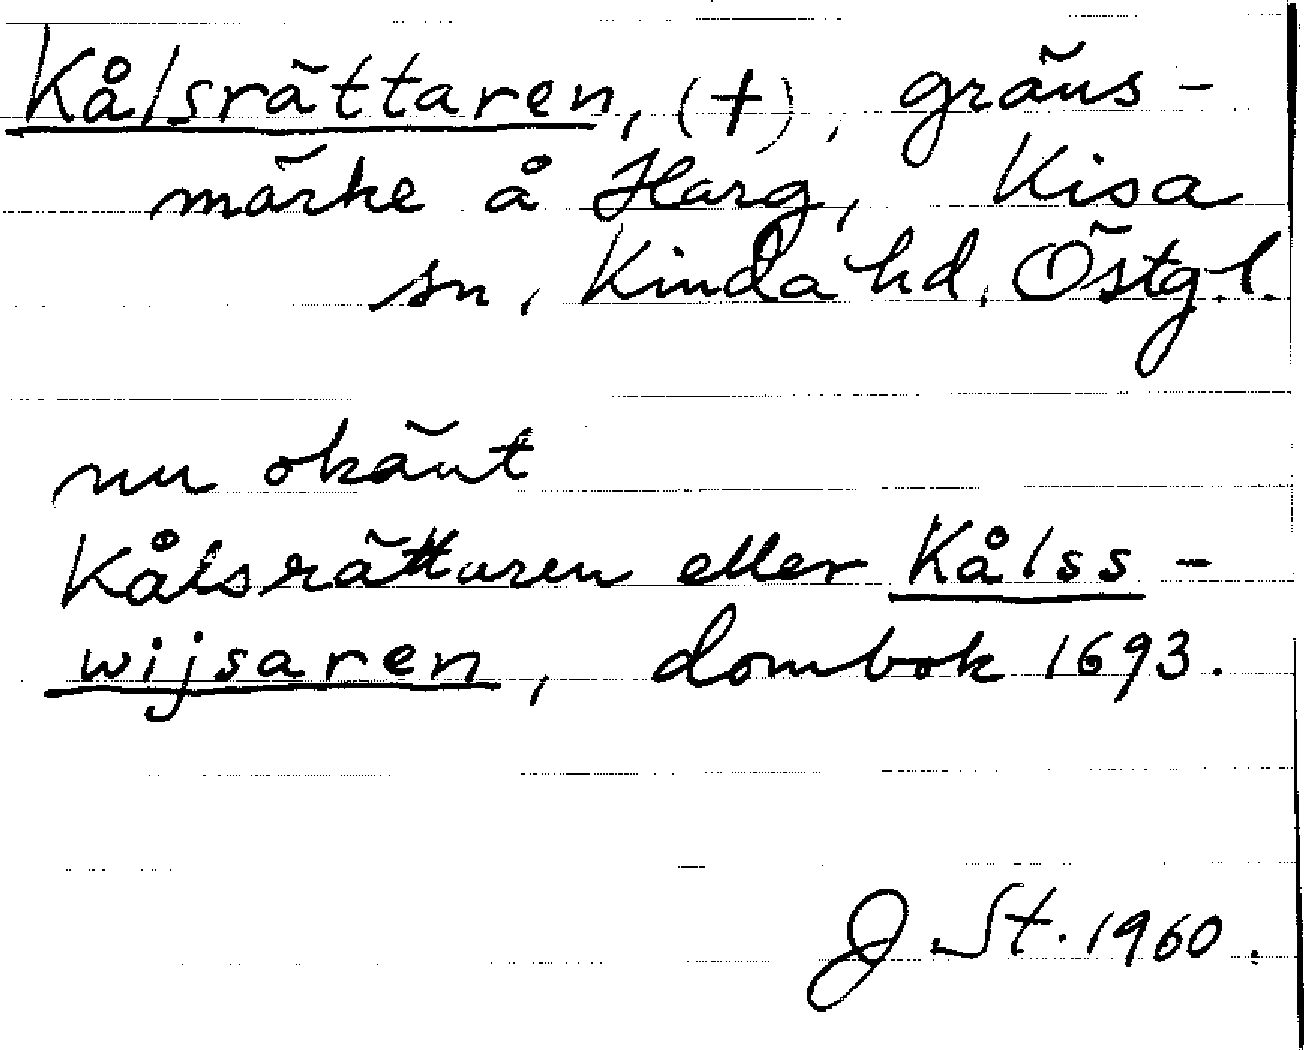 Kålsrättaren, (†), gräns-
märke å Harg, Kisa
sn, Kinda hd, Östg.l.
nu okänt
Kålsrättaren eller Kålss-
wijsaren, dombok 1693.
J. St. 1960.